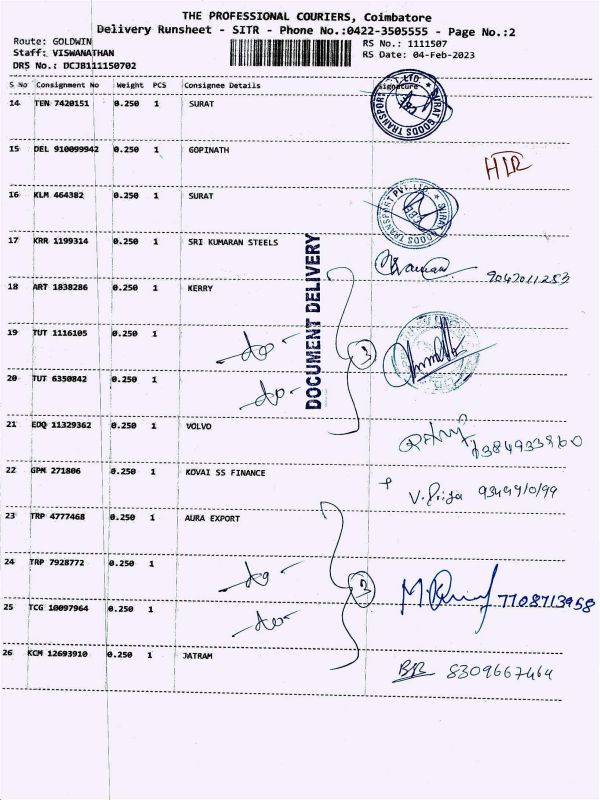 THE PROFESSIONAL COURIERS, Coimbatore
Delivery Runsheet - SITR - Phone No.:0422-3505555 - Page No.:2
Route: GOLDWIN RS No.: 1111507
Staff: VISWANATHAN RS Date: 04-Feb-2023
DRS No.: DCJB111150702
S No Consignment No Weight PCS Consignee Details Signature
14 TEN 7420151 0.250 1 SURAT
SURAT GOODS TRANSPORT PVT. LTD.
15 DEL 910099942 0.250 1 GOPINATH
16 KLM 464382 0.250 1 SURAT
SURAT GOODS TRANSPORT PVT. LTD.
17 KRR 1199314 0.250 1 SRI KUMARAN STEELS
9042011253
DOCUMENT DELIVERY
18 ART 1838286 0.250 1 KERRY
19 TUT 1116105 0.250 1 -do- 3
20 TUT 6350842 0.250 1 -do-
21 EDQ 11329362 0.250 1 VOLVO
22 GPM 271806 0.250 1 KOVAI SS FINANCE
V. Priya
23 TRP 4777468 0.250 1 AURA EXPORT
24 TRP 7928772 0.250 1 -do- 3
7708713958
25 TCG 10097964 0.250 1 -do-
26 KCM 12693910 0.250 1 JATRAM
8309667464